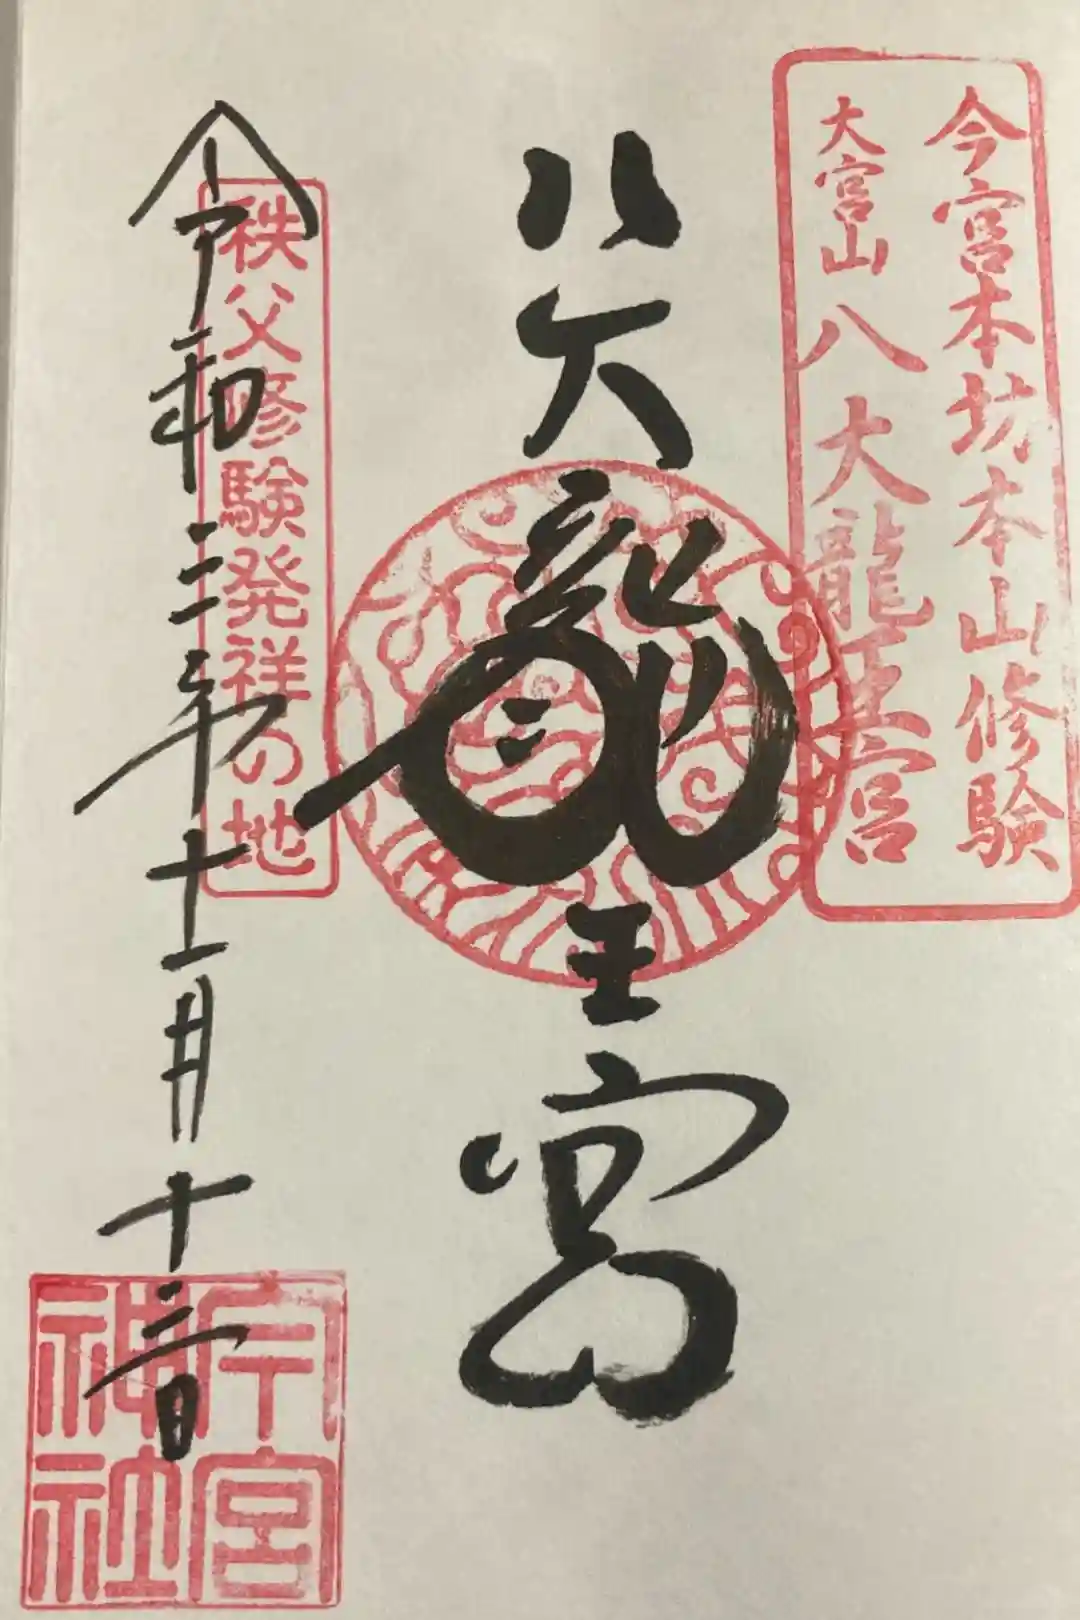 今宮本坊本山修験
大宮山八大龍王宮
八大龍王宮
秩父修験発祥の地
令和三年十一月十三日
今宮神社